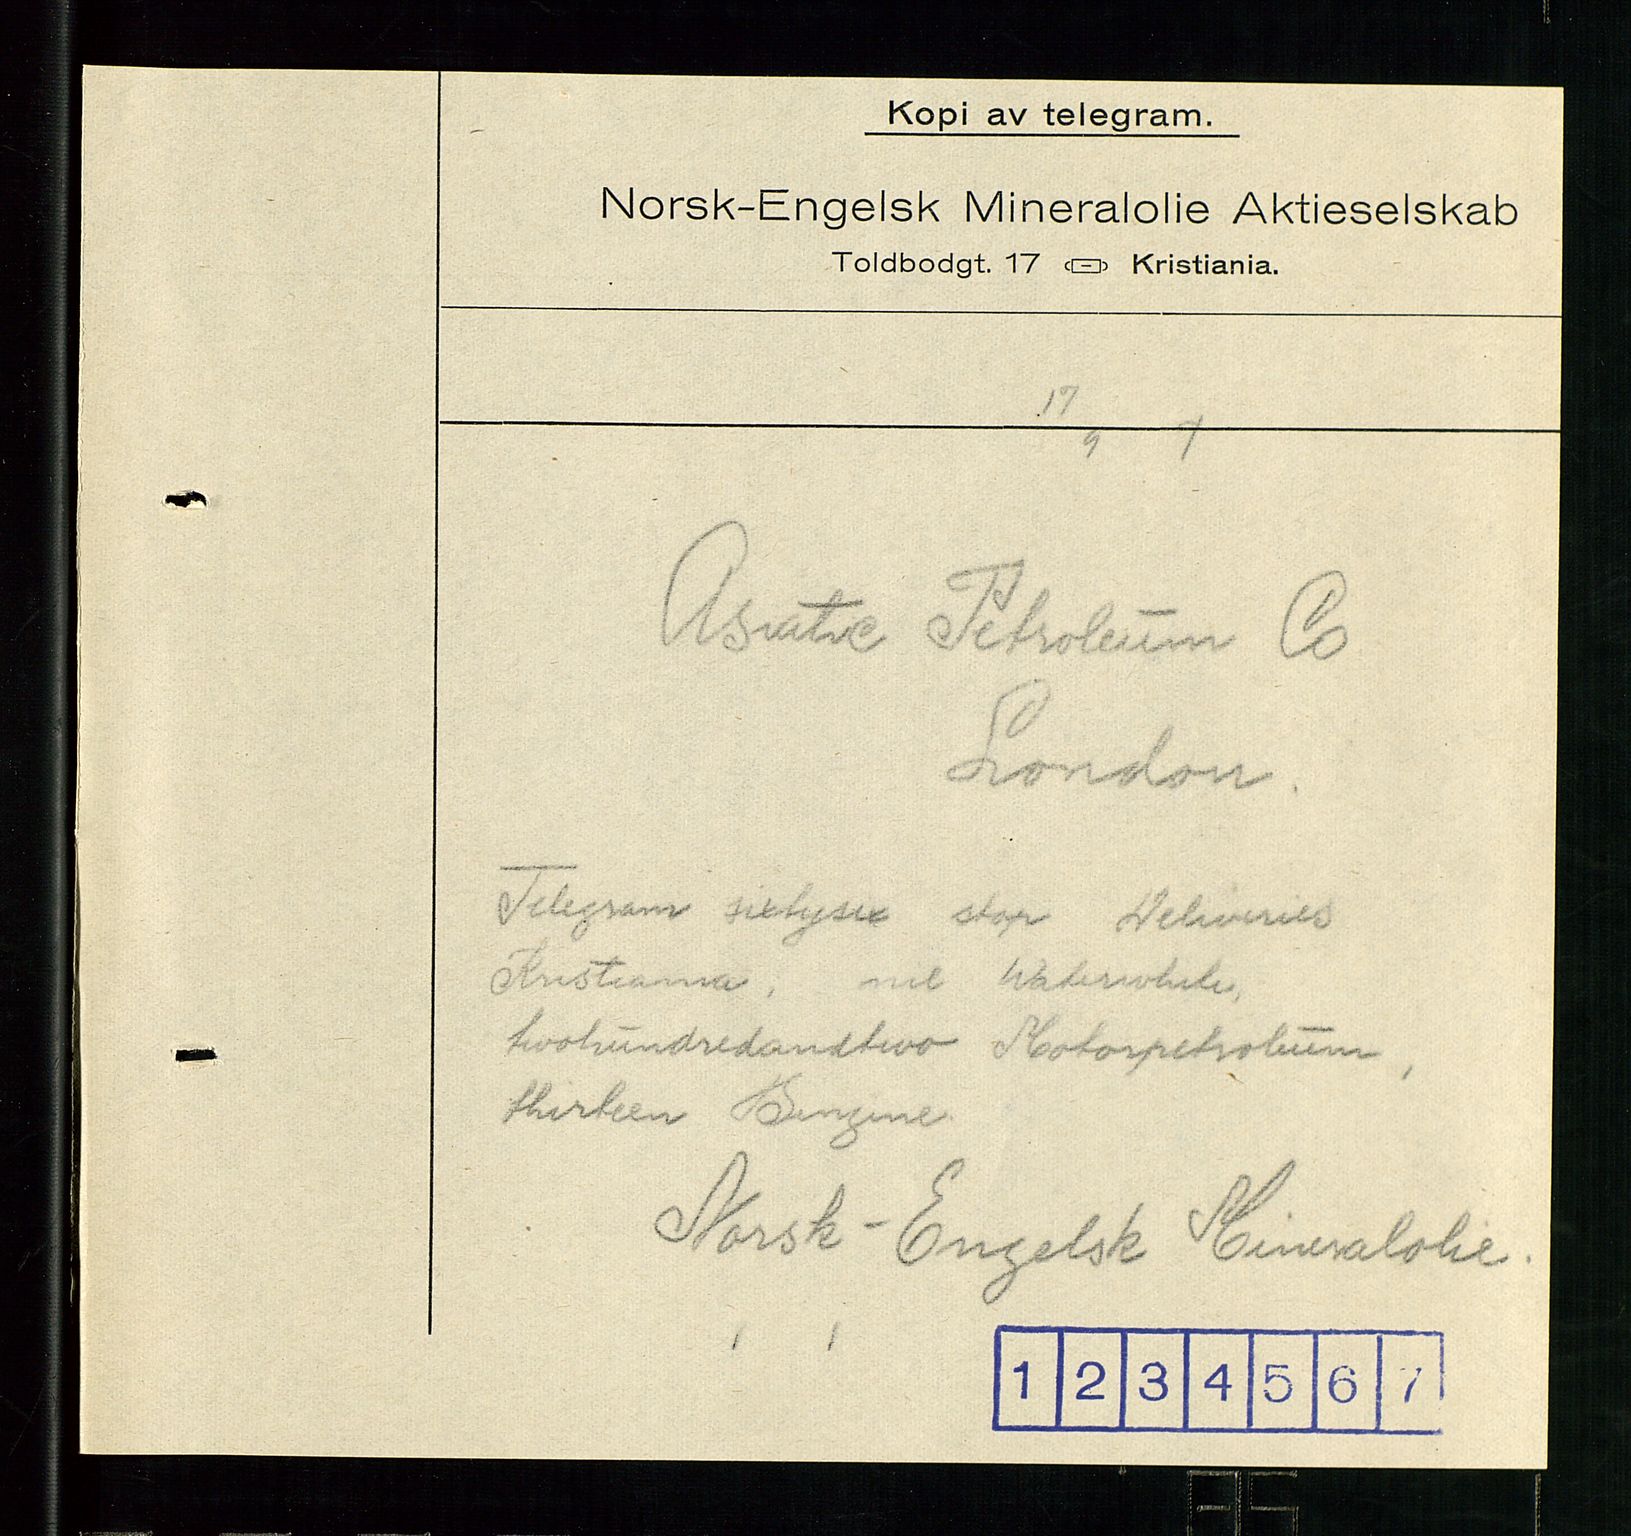 Kopi av telegram.
Norsk-Engelsk Mineralolie Aktieselskab
Toldbodgt. 17 Kristiania.
17
9
Asiatic Petroleum Co
London.
Telegram sixtysix stop Deliveries
Kristiania, nil Waterwhite,
twohundredandtwo Motorpetroleum,
thirteen Benzine
Norsk-Engelsk Mineralolie.
1 2 3 4 5 6 7